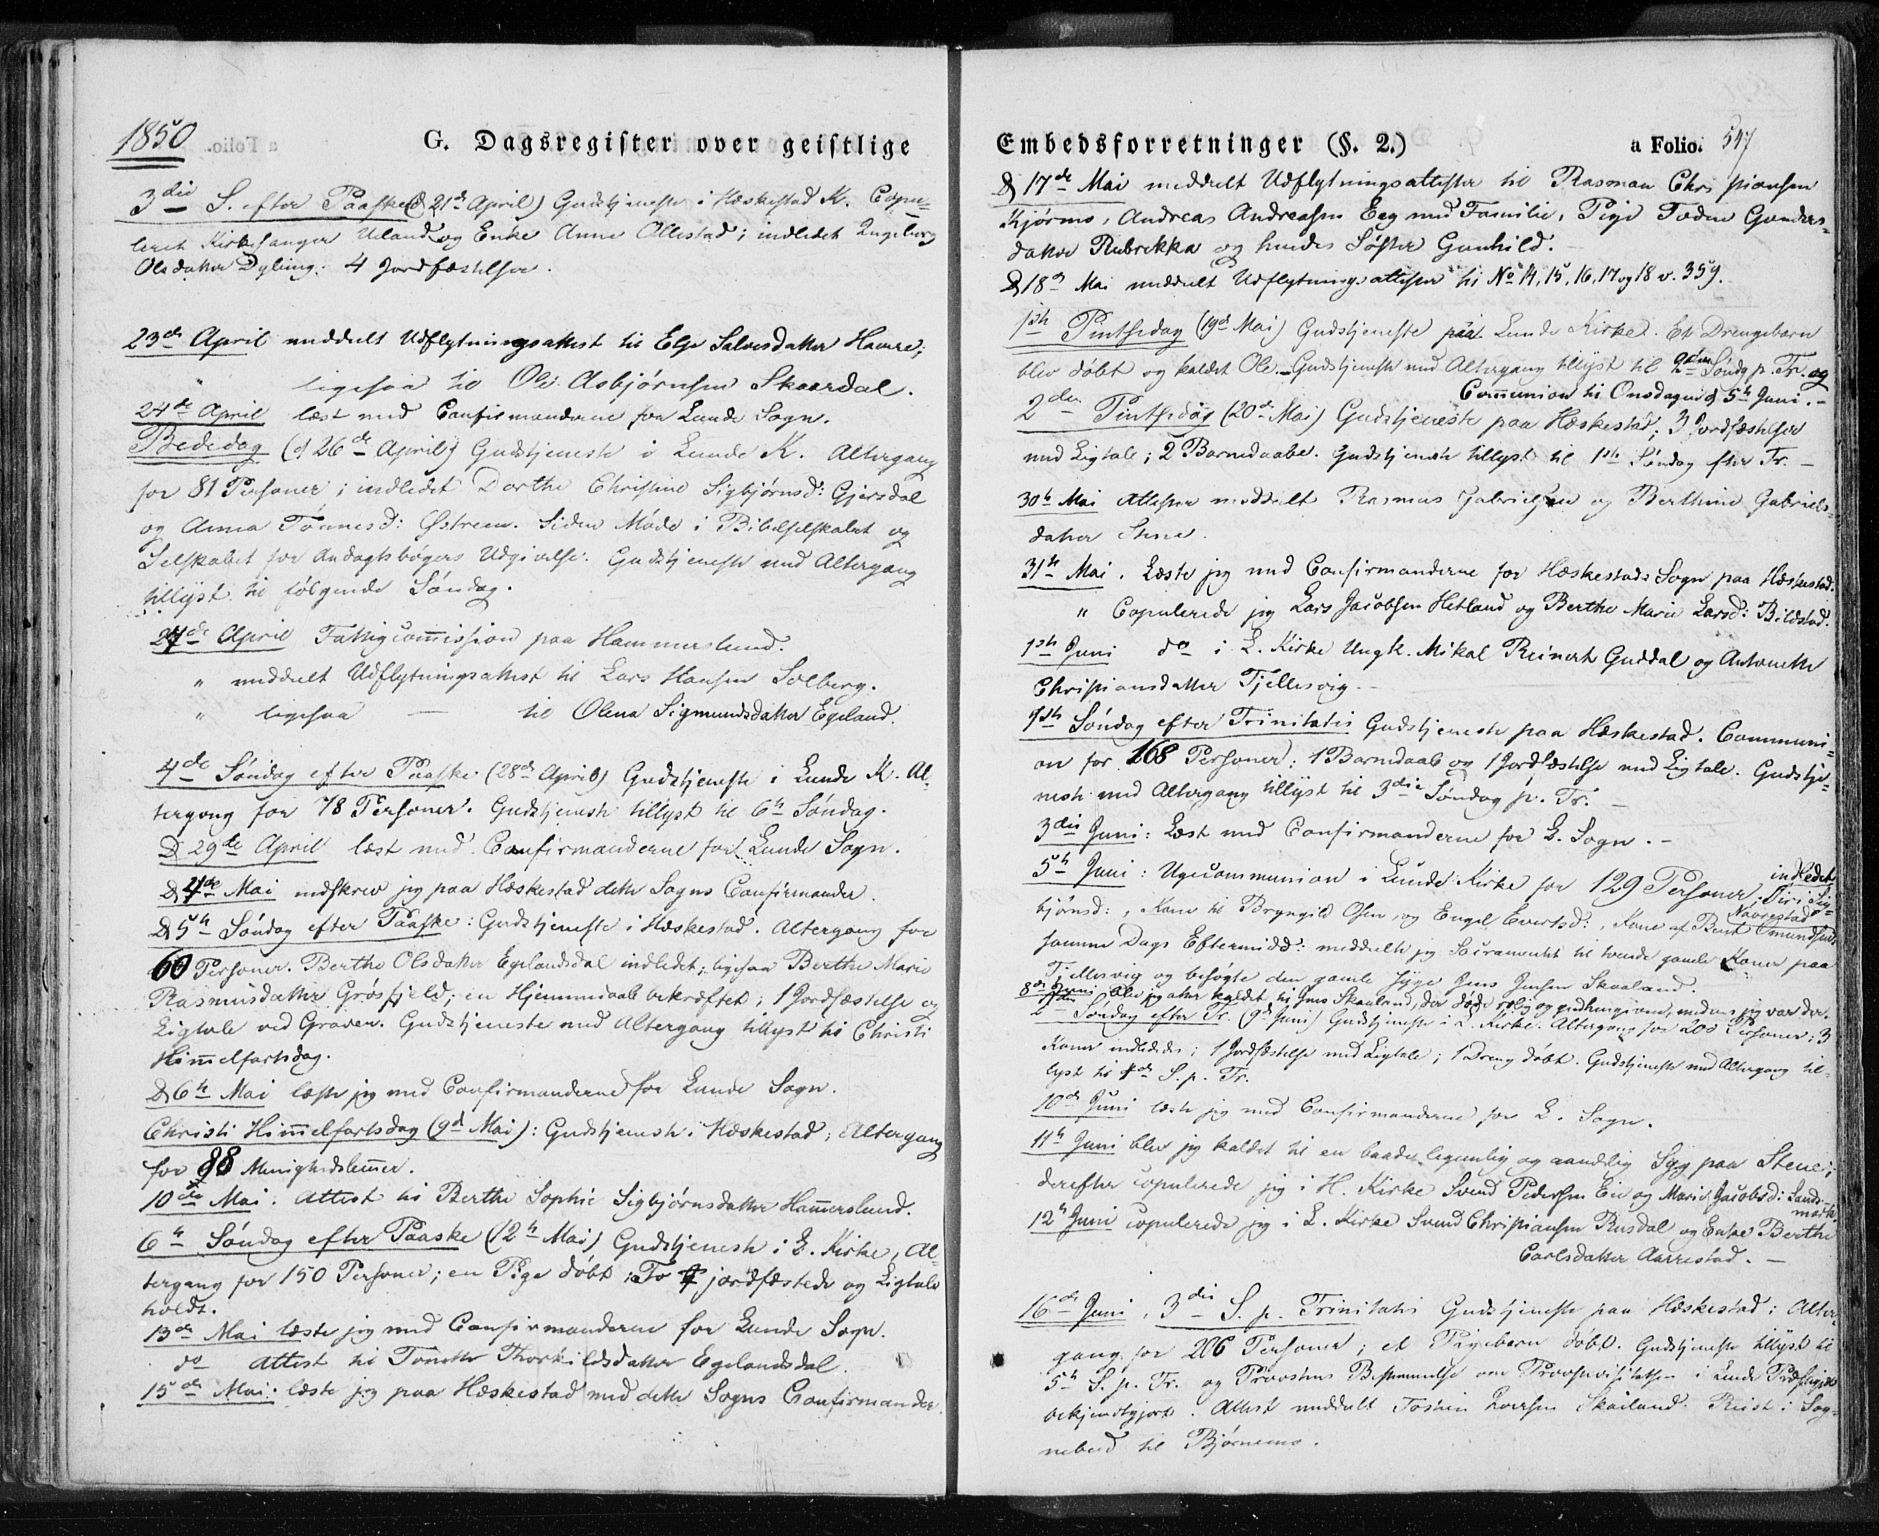 1850
G. Dagsregister over geistlige
3die S. efter Paaske (d 21de April) Gudstjeneste i Hæskestad K. Copu-
leret Kirkesanger Uland og Enke Anne Ollestad; indledet Ingeborg
Olsdatter Dybing. 4 Jordfæstelser.
23de April meddelt Udflytningsattest til Else Salvesdatter Hamre;
" ligesaa til Ole Asbjørnsen Skaardal.
24de April læst med Confirmanderne for Lunde Sogn.
Bededag (d 26de April) Gudstjeneste i Lunde K. Altergang
for 81 Personer; indledet Dorthe Christine Sigbjørnsd: Gjersdal
og Anna Tønnesd: Østrem. Siden Møde i Bibelselskabet og
Selskabet for Andagtsbøgers Udgivelse. Gudstjeneste med Altergang
tillyst til følgende Søndag.
27de April Fattigcommission paa Hammerslund.
" meddelt Udflytningsattest til Lars Hansen Solberg.
" ligesaa — til Olena Sigmundsdatter Egeland.
4de Søndag efter Paaske (28de April) Gudstjeneste i Lunde K. Al-
tergang for 78 Personer. Gudstjeneste tillyst til 6te Søndag.
D 29de April læst med Confirmanderne for Lunde Sogn.
D 4de Mai indskrev jeg paa Hæskestad dette Sogns Confirmander.
D 5te Søndag efter Paaske: Gudstjeneste i Hæskestad. Altergang for
60 Personer. Berthe Olsdatter Egelandsdal indledet; ligesaa Berthe Marie
Rasmusdatter Grøsfjeld; en Hjemmedaab bekræftet; 1 Jordfæstelse og
Ligtale ved Graven. Gudstjeneste med Altergang tillyst til Christi
Himmelfartsdag.
D 6te Mai læste jeg med Confirmanderne for Lunde Sogn.
Christi Himmelfartsdag (9de Mai): Gudstjeneste i Hæskestad; Altergang
for 88 Menighedslemmer.
10de Mai. Attest til Berthe Sophie Sigbjørnsdatter Hammerslund.
6te Søndag efter Paaske (12te Mai) Gudstjeneste i L. Kirke, Al-
tergang for 150 Personer; en Pige døbt; To jordfæstede og Ligtale
holdt.
13de Mai læste jeg med Confirmanderne for Lunde Sogn.
do Attest til Tonette Thorkildsdatter Egelandsdal.
15de Mai. læste jeg paa Hæskestad med dette Sogns Confirmander.
Embedsforretninger (§. 2.)
a Folio. 547
D 17de Mai meddelt Udflytningsattester til Rasmus Christiansen
Kjørmo, Andreas Andreassen Eeg med Familie, Pige Gunders-
datter Rubrekka og hendes Søster Gunhild.
D 18de Mai meddelt Udflytningsattester til No 14, 15, 16, 17 og 18 v. 359.
1ste Pintsedag (19de Mai) Gudstjeneste paa Lunde Kirke. Et Drengebarn
blev døbt og kaldet Ole. Gudstjeneste med Altergang tillyst til 2den Søndg p. Tr. og
Communion til Onsdagen d 5te Juni.
2den Pintsedag (20de Mai) Gudstjeneste paa Hæskestd; 3 Jordfæstelser
med Ligtale; 2 Barnedaabe. Gudstjeneste tillyst til 1ste Søndag efter Tr. —
30te Mai Attester meddelt Rasmus Gabrielsen og Berthine Gabriels-
datter Stene.
31te Mai. Læste jeg med Confirmanderne for Hæskestads Sogn paa Hæskestad.
" Copulerede jeg Lars Jacobsen Hetland og Berthe Marie Larsd: Bilstad.
1ste Juni do i L. Kirke Ungk. Mikal Reinert Guddal og Antonette
Christiansdatter Tjellesvig.
1ste Søndag efter Trinitatis Gudstjeneste paa Hæskestad. Communi-
on for 168 Personer; 1 Barnedaab og 1 Jordfæstelse med Ligtale. Gudstje-
neste med Altergang tillyst til 3die Søndag p. Tr. —
3die Juni: Læst med Confirmanderne for L. Sogn. —
5te Juni: Ugecommunion i Lunde Kirke for 129 Personer; indledet Siri Sig-
bjørnsd:, Kone til Bryngild Osen, og Engel Evertsd:, Kone af Berent Omundsen Navrestad
samme Dags Eftermidd: meddelte jeg Sacramentet til tvende gamle Koner paa
Tjellesvig og besøgte den gamle syge Jens Jensen Skaaland.
8de Juni blev jeg atter kaldet til Jens Skaaland, der døde rolig og gudhengiven, medens jeg var der.
2den Søndag efter Tr. (9de Juni) Gudstjeneste i L. Kirke. Altergang for 200 Personer; 3
Koner indlededes; 1 Jordfæstelse med Ligtale; 1 Dreng døbt. Gudstjeneste med Altergang til-
lyst til 4de S. p. Tr.
10de Juni læste jeg med Confirmanderne for L. Sogn.
11te Juni blev jeg kaldet til en baade legemlig og aandelig Syg paa Stene;
derefter copulerede jeg i H. Kirke Svend Pedersen Eie og Marie Jacobsd: Sands-
mark.
12te Juni copulerede jeg i L. Kirke Svend Christiansen Rusdal og Enke Berthe
Carlsdatter Aarrestad. —
16de Juni, 3die S. p. Trinitatis Gudstjeneste paa Hæskestad; Alter-
gang for 206 Personer; et Pigebarn døbt. Gudstjeneste tillyst til
5te S. p. Tr. og Provstens Bestemmelse om Provstevisitatsen i Lunde Præstegjeld
bekjendtgjort. Attest meddelt Skailand. Reist i Sog-
nebud til Bjørnemo.